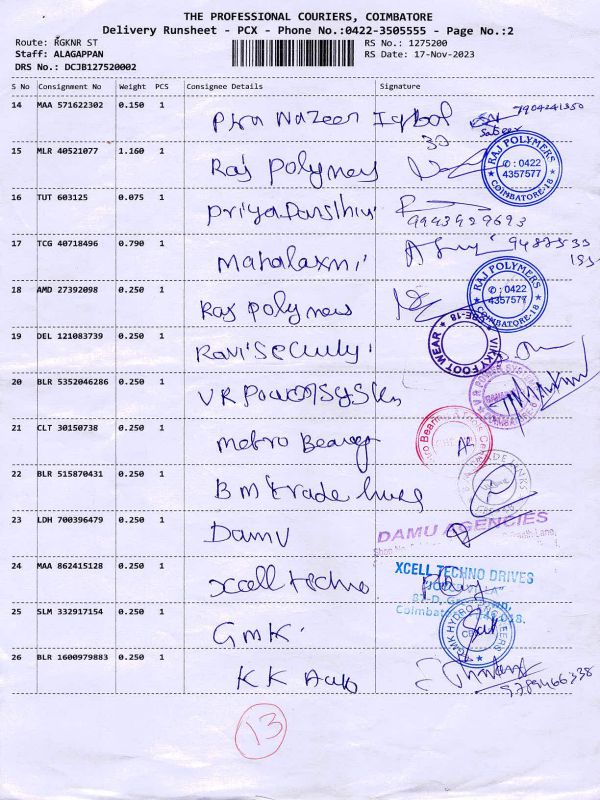 THE PROFESSIONAL COURIERS, COIMBATORE
Delivery Runsheet - PCX - Phone No.:0422-3505555 - Page No.:2
Route: RGKNR ST
RS No.: 1275200
Staff: ALAGAPPAN
RS Date: 17-Nov-2023
DRS No.: DCJB127520002
S No Consignment No Weight PCS Consignee Details Signature
14 MAA 571622302 0.150 1 Nazeer Iqbal 7904241350
15 MLR 40521077 1.160 1 Raj Polymers
RAJ POLYMERS
✆: 0422
4357577
COIMBATORE-18
16 TUT 603125 0.075 1 Priyadarshini
9943929693
17 TCG 40718496 0.790 1 Mahalaxmi
18 AMD 27392098 0.250 1 Raj Polymers
RAJ POLYMERS
✆: 0422
4357577
COIMBATORE-18
19 DEL 121083739 0.250 1 Ravi Security
VIKKY FOOT WEAR
CBE-18
20 BLR 5352046286 0.250 1 VR Power Systems
21 CLT 30150738 0.250 1 Metro Bearings
22 BLR 515870431 0.250 1 BM Trade Lines
23 LDH 700396479 0.250 1 Damu
DAMU AGENCIES
24 MAA 862415128 0.250 1 Xcell Techno
XCELL TECHNO DRIVES
25 SLM 332917154 0.250 1 GMK
GMK HYDRO ENGINEERS
26 BLR 1600979883 0.250 1 KK Auto
9789466338
13